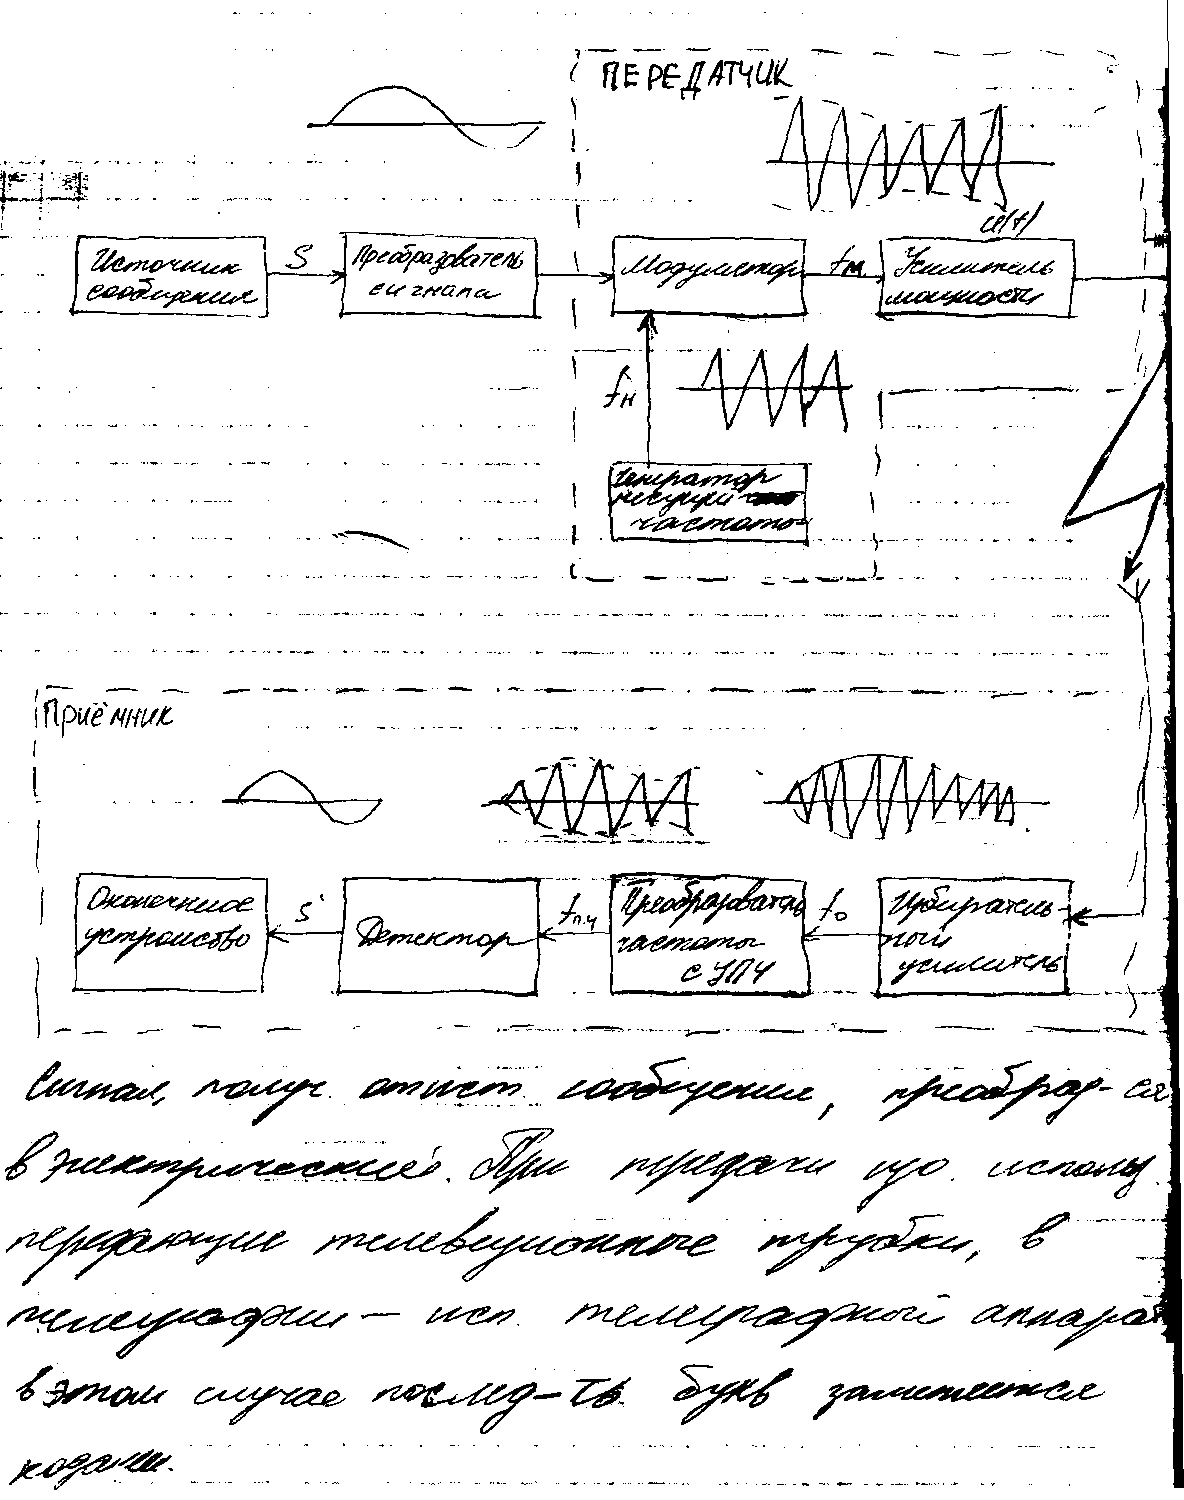 ПЕРЕДАТЧИК
u(t)
Источник
сообщения
S
Преобразователь
сигнала
Модулятор
fм
Усилитель
мощности
fн
Генератор
несущей
частоты
Приёмник
Оконечное
устройство
S'
Детектор
fп.ч
Преобразователь
частоты
с УПЧ
fо
Избиратель-
ный
усилитель
Сигнал, получ. от ист. сообщения, преобраз-ся
в электрический. При передачи изо. использ.
передающие телевизионные трубки, в
телеграфии – исп. телеграфный аппарат
в этом случае послед-ть букв заменяется
кодами.